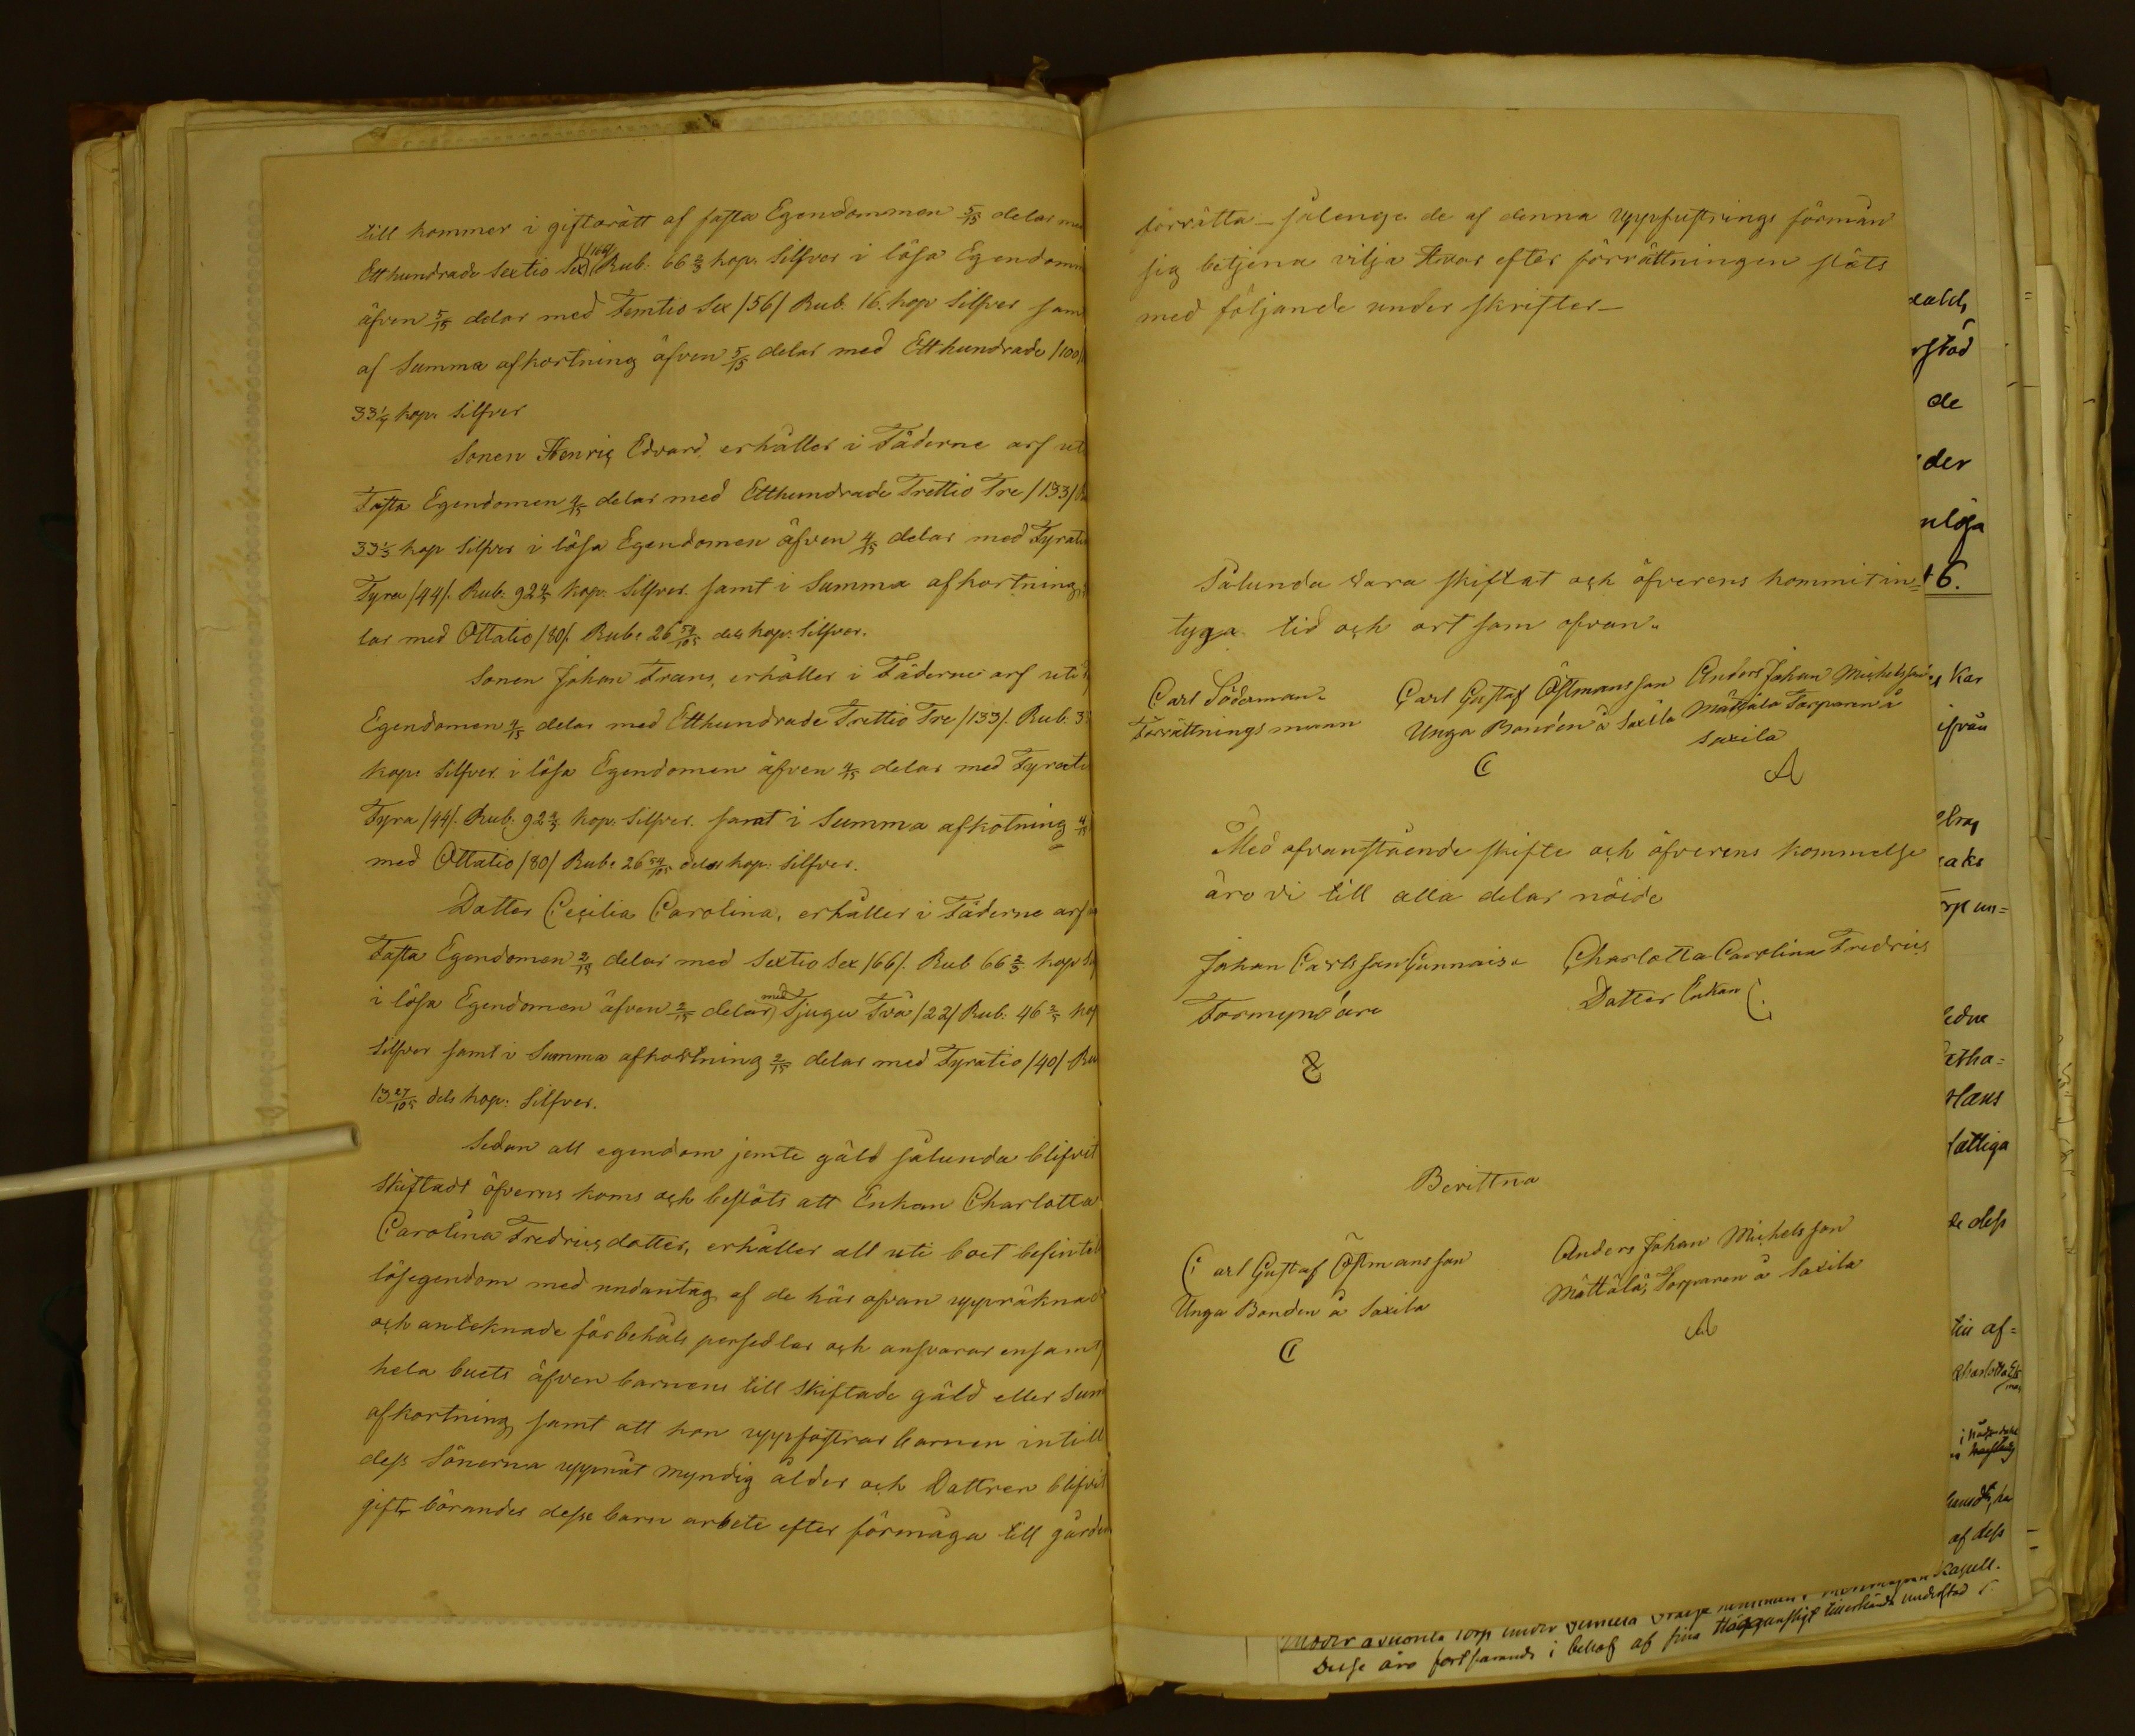 till kommer i giftorätt af fasta Egendommen 5/15 delar med
Etthundrade Sextio Sex /166/ Rub. 66 2/3 kop. Silfver i lösa Egendomm
äfven 5/15 delar med Femtio Sex /56/ Rub. 16. kop Silfver sam
af Summa afkortning äfven 5/15 delar med Etthundrade /100/
33 1/7 kop. Silfver
Sonen Henric Edvard erhåller i Fäderne arf ut
Fasta Egendomen 4/15 delar med Etthundrade Trettio Tre /133/ R
33 1/3 kop Silfver i lösa Egendomen äfven 4/15 delar med Fyrati
Fyra /44/. Rub. 92 4/5 kop. Silfver. samt i Summa afkortning
lar med Ottatio /80/. Rub. 26 54/105 dels kop. Silfver.
Sonen Johan Frans, erhåller i Fäderne arf uti
Egendomen 4/15 delar med Etthundrade Trettio Tre /133/. Rub. 3
kop. Silfver i lösa Egendomen äfven 4/15 delar med Fyrati
Fyra /44/. Rub. 92 4/5 kop. Silfver. samt i Summa afkotning 4/15
med Ottatio /80/ Rub. 26 54/105 delar kop. Silfver.
Dotter Cecilia Carolina, erhåller i Fäderne arf
Fasta Egendomen 2/15 delar med Sextio Sex /66/. Rub 66 2/3 kop Si
i lösa Egendomen äfven 2/15 delar med Tjugu Två /22/ Rub. 46 2/5 kop
Silfver samt i Summa afkortning 2/15 delar med Fyratio /40/ Ru
13 27/105 dels kop. Silfver.
Sedan all egendom jemte gäld sålunda blifvit
skiftadt öfverns koms och beslöts att Enkan Charlotta
Carolina Fredricsdotter, erhåller all uti boet befintel
lösegendom med undantag af de här ofvan uppräknad
och anteknade förbehåls persedlar och ansvarar ensamt
hela buets äfven barnens till skiftade gäld eller Sum
afkortning, samt att hon uppfostrar barnen intill
dess Sönerna uppnåt myndig ålder och Dottren blifvit
gift börandes desse barn arbete efter förmåga till gården
förrätta _ sålenge de af denna uppfostrings förmån
sig betjena vilja Hvar efter förrättningen slöts
med följande under skrifter _
Sålunda vara skiftat och öfverens kommit in=
tyga tid och ort som ofvan.
Carl Söderman. Carl Gustaf Östmansson Anders Johan Michelsson
Förrättningsmann Unga Bonden å Saxila Mättälä Torparen å
Saxila
C A
Med ofvanstående skifte och öfverens kommelse
äro vi till alla delar nöide
Johan Carlsson Gunnais. Charlotta Carolina Fredrics
Förmyndare Dotter Enkan
Bevittna
Carl Gustaf Östmansson Anders Johan Michelsson
Unga Bonden å Saxila Mättälä, Torparen å Saxila
C A
de
der
6.
Hans
fattiga
de dess
till af=
af dess
Kapell.
Desse äro fortfarande i behof af sina tillerkända understöd